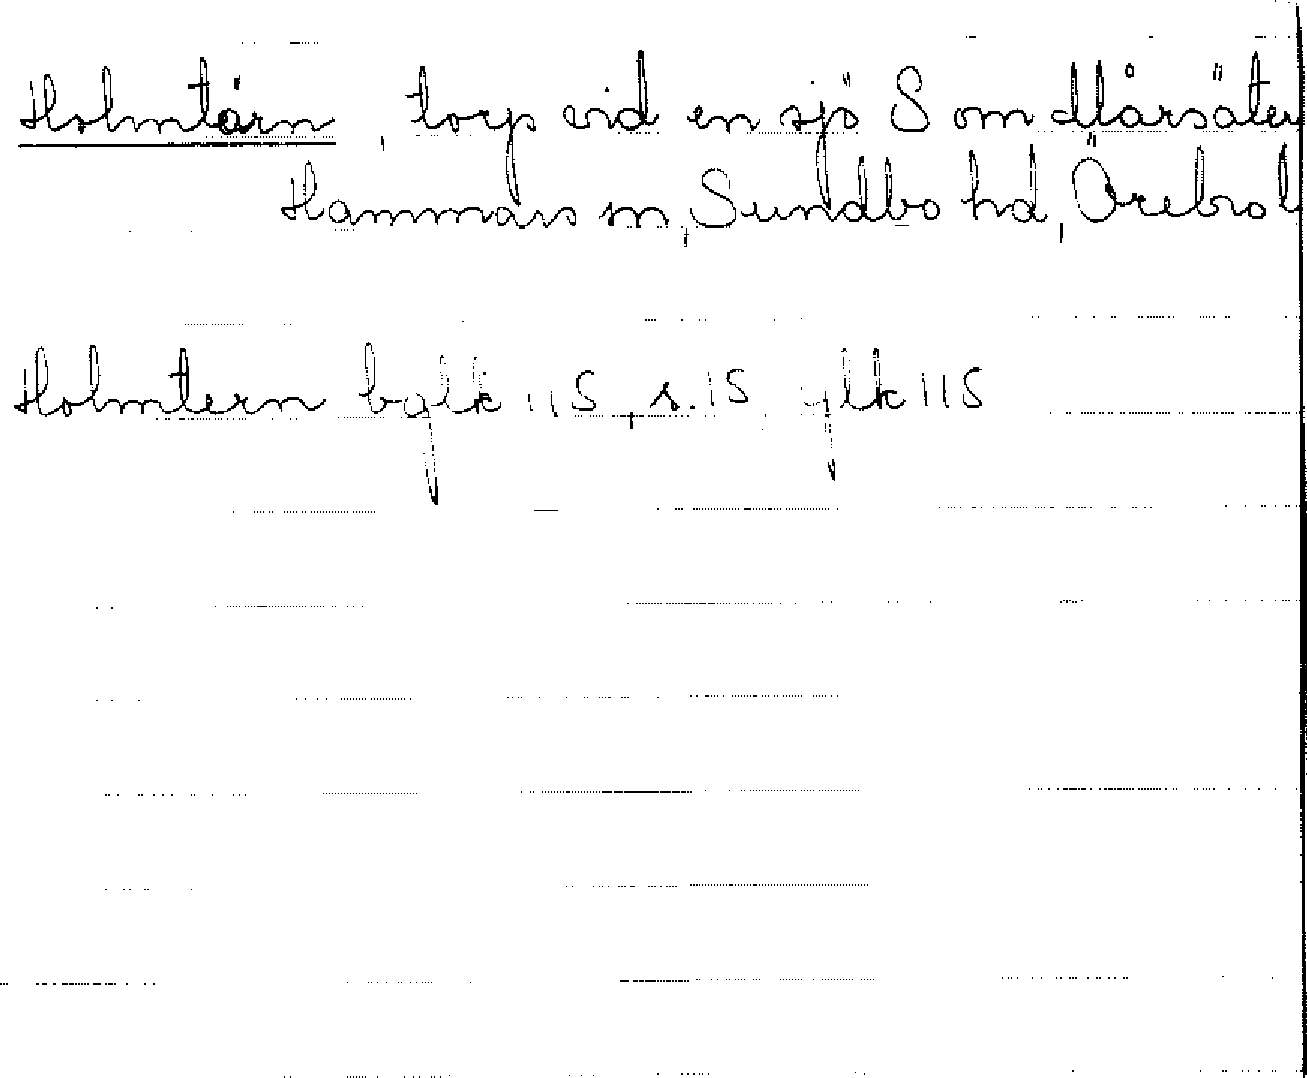 Holmtärn, torp vid en sjö S om Mårsäter
Hammars sn, Sundbo hd, Örebro l
Holmtern bglk 115, s. 15, glk 115